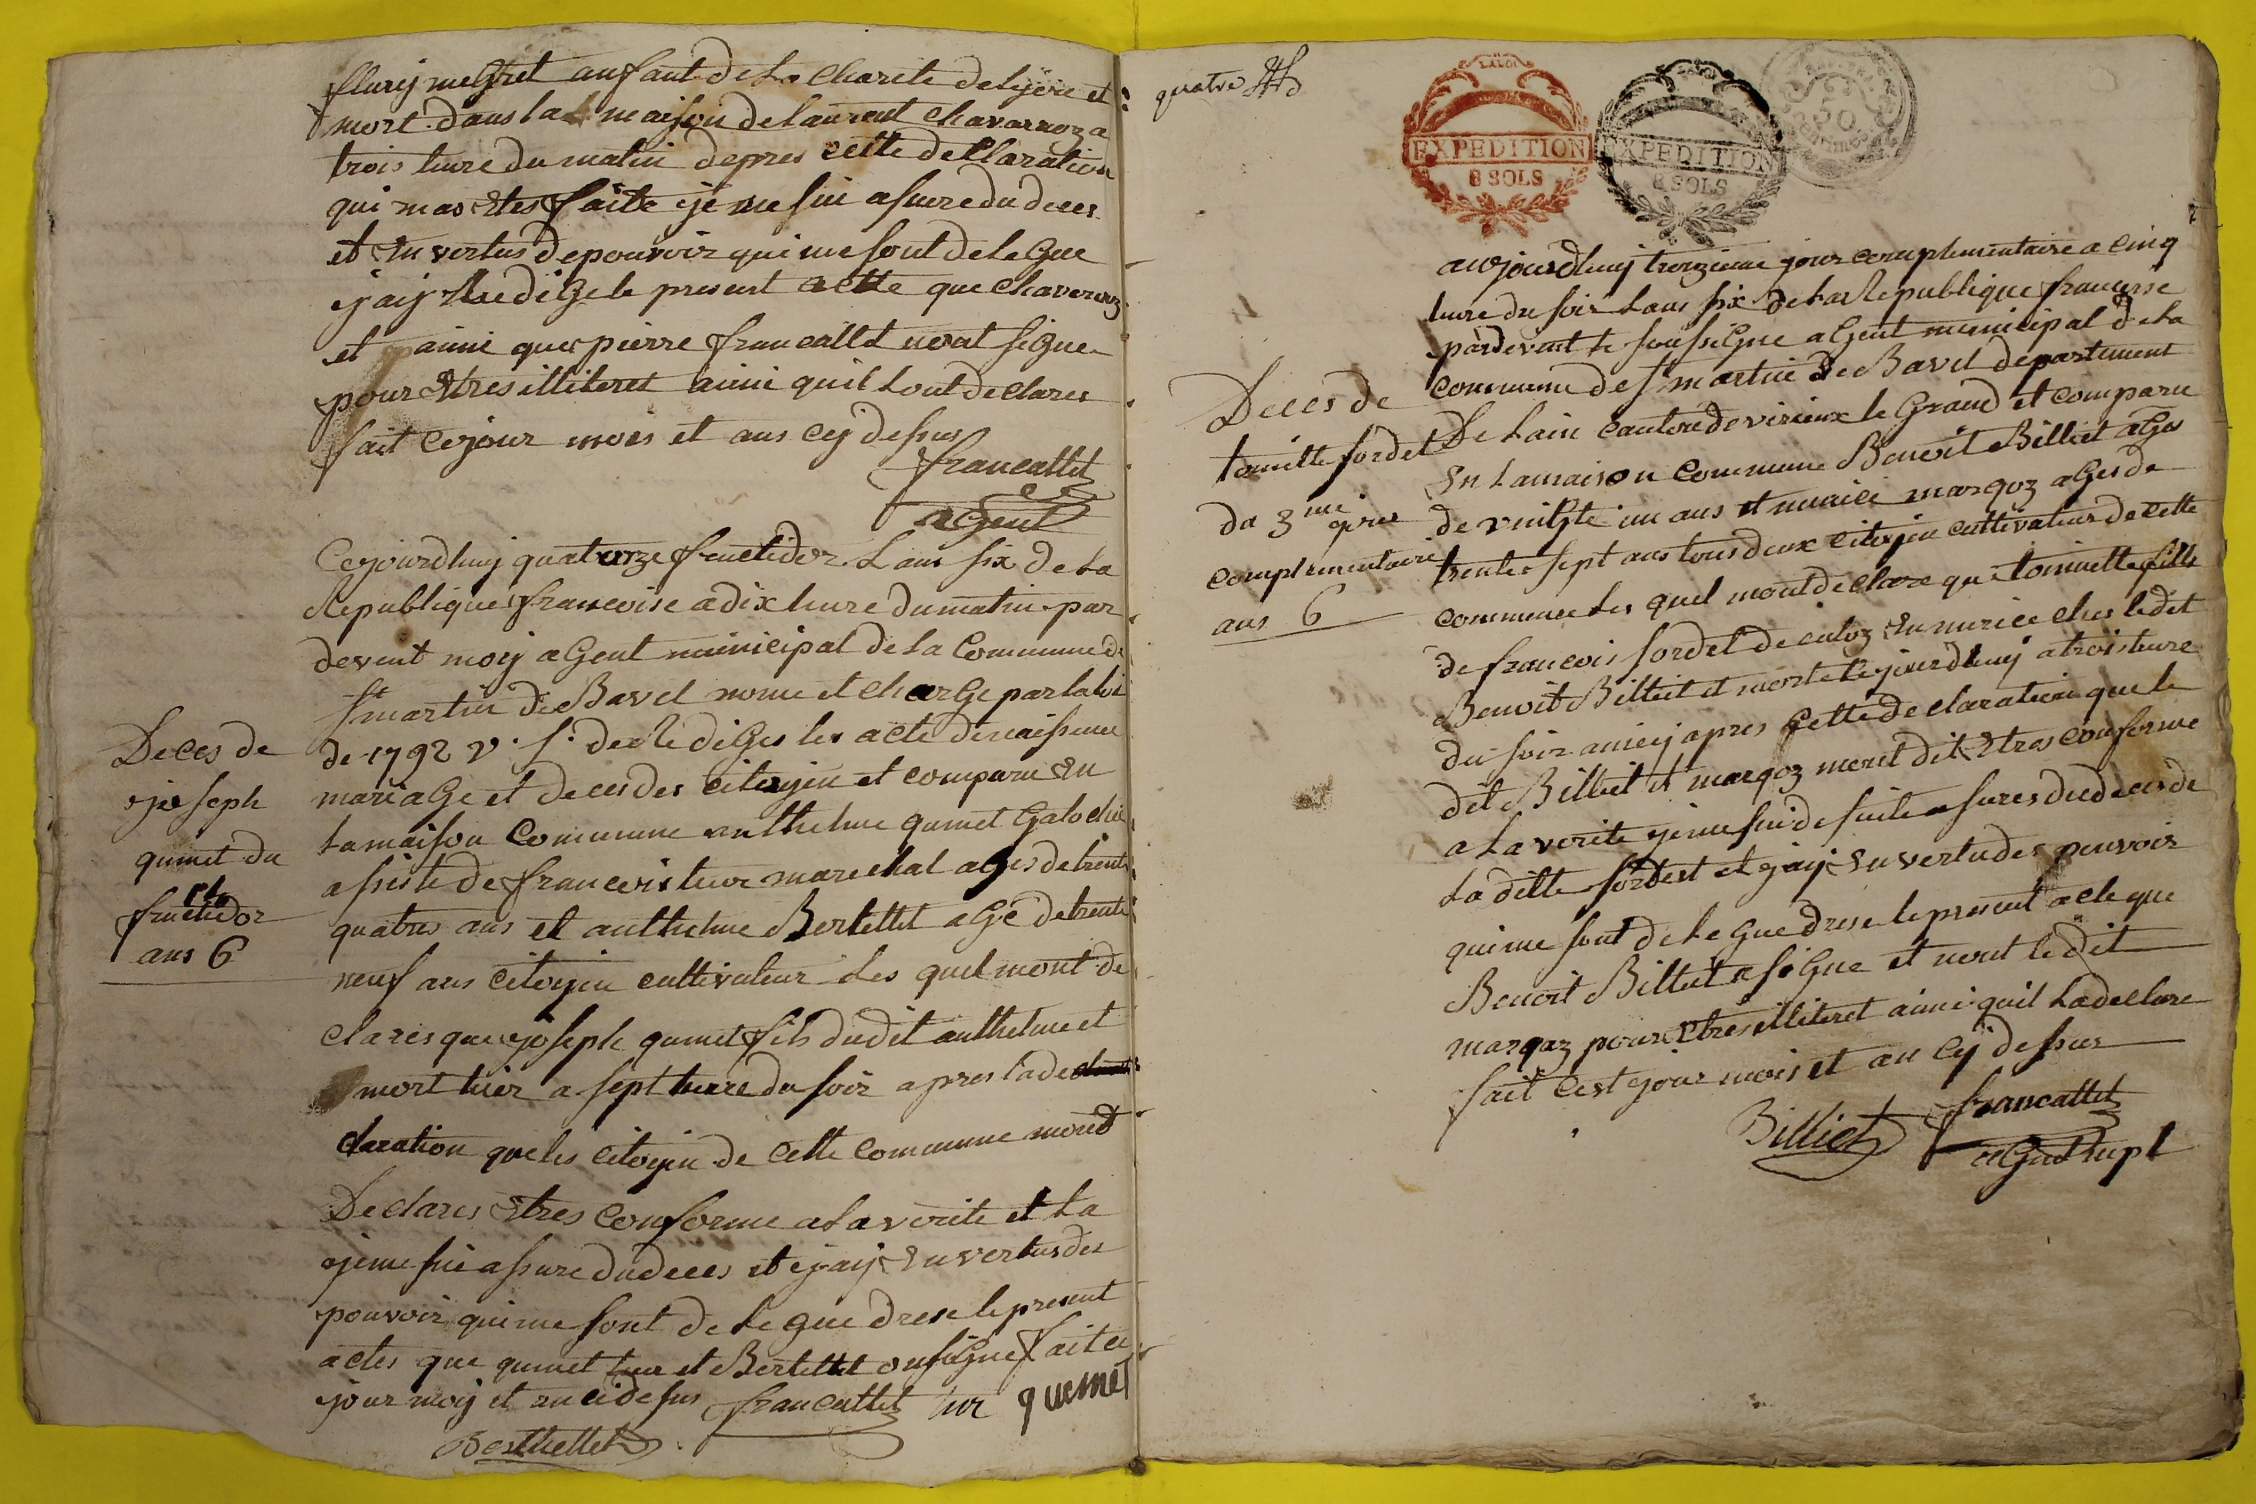 fleurij meGret anfant de La Charite de Lijon et
mort dans La maison de Laurent Chavarnoz a
trois heure du matin depres cette declaration
qui mas Etes faite je me sui asure du deces
et En vertus de pouvoir qui me sont deleGue
j'aij RediGe le present acte que Chaveroz
et ainsi que pierre francallet nont siGne
pour Etres illiteret ainsi quil Lont declares
fait Ce jour mois et ans Cij dessus
francallet
aGent
Ce jourdhuij quatorze fructidor Lans six de La
Republique francoise a dix heure du matin par
devent moij aGent municipal de La Commune de
St martin de Bavel nome et CharGe par La loi
de 1792 v. s. de RediGes les acte de naissence
mariaGe et deces des citoyin et comparu En
La maison Commune anthelme qumet Galoche
assiste de francois teur marechal aGes de trente
quatres ans et anthelme Bertellet aGe de trente
neuf ans citoyin cultivateur Les quel mont de
Deces de
joseph
qumet du
14
fructidor
ans 6
clares que joseph qumet fils dudit anthelme et
mort hier a sept heure du soir apres La de
claration que les citoyin de cette Commune mont
Declares Etres Conforme a La verite et La
je me sui assure du deces et j'aij En vertus des
pouvoir qui me sont deleGue drese le present
actes que qumet teur et Bertellet on siGne fait ce
jour moij et an ci desus francallet teur quemet
Berthellet
quatre
LA LOI
EXPEDITION
8 SOLS
LA LOI
EXPEDITION
8 SOLS
50
CENTIMES
aujourdhuij troizieme jour complementaire a cinq
heure du soir Lans six de La Republique francoise
pardevent le soussiGne aGent municipal de La
commune de St martin de Bavel departement
De Lain canton de virieux le Grand et comparu
En La maison commune Benoit Billiet aGes
de vinGte un ans et marqoz aGes de
trente sept ans tous deux citoyin cultivateur de cette
commune Les quel mont declare que toinnette fille
de francois sordet de culoz En nurice ches ledit
Benoit Billiet et morte Ce jourdhuij a trois heure
du soir ainci apres Cette declaration que le
dit Billiet et marqoz mont dit Etres conforme
a La verite je me sui de suite asures du deces de
La ditte sordet et j'aij En vertu des pouvoir
qui me sont deleGue drese le present acte que
Benoit Billiet a siGne et nont le dit
marqoz pour Etres illiteret ainsi quil La declare
fait Cest jour mois et an Cij dessus
Deces de
toinette sordet
du 3me jour
complementaire
ans 6
Billiet francallet
aGent mupl